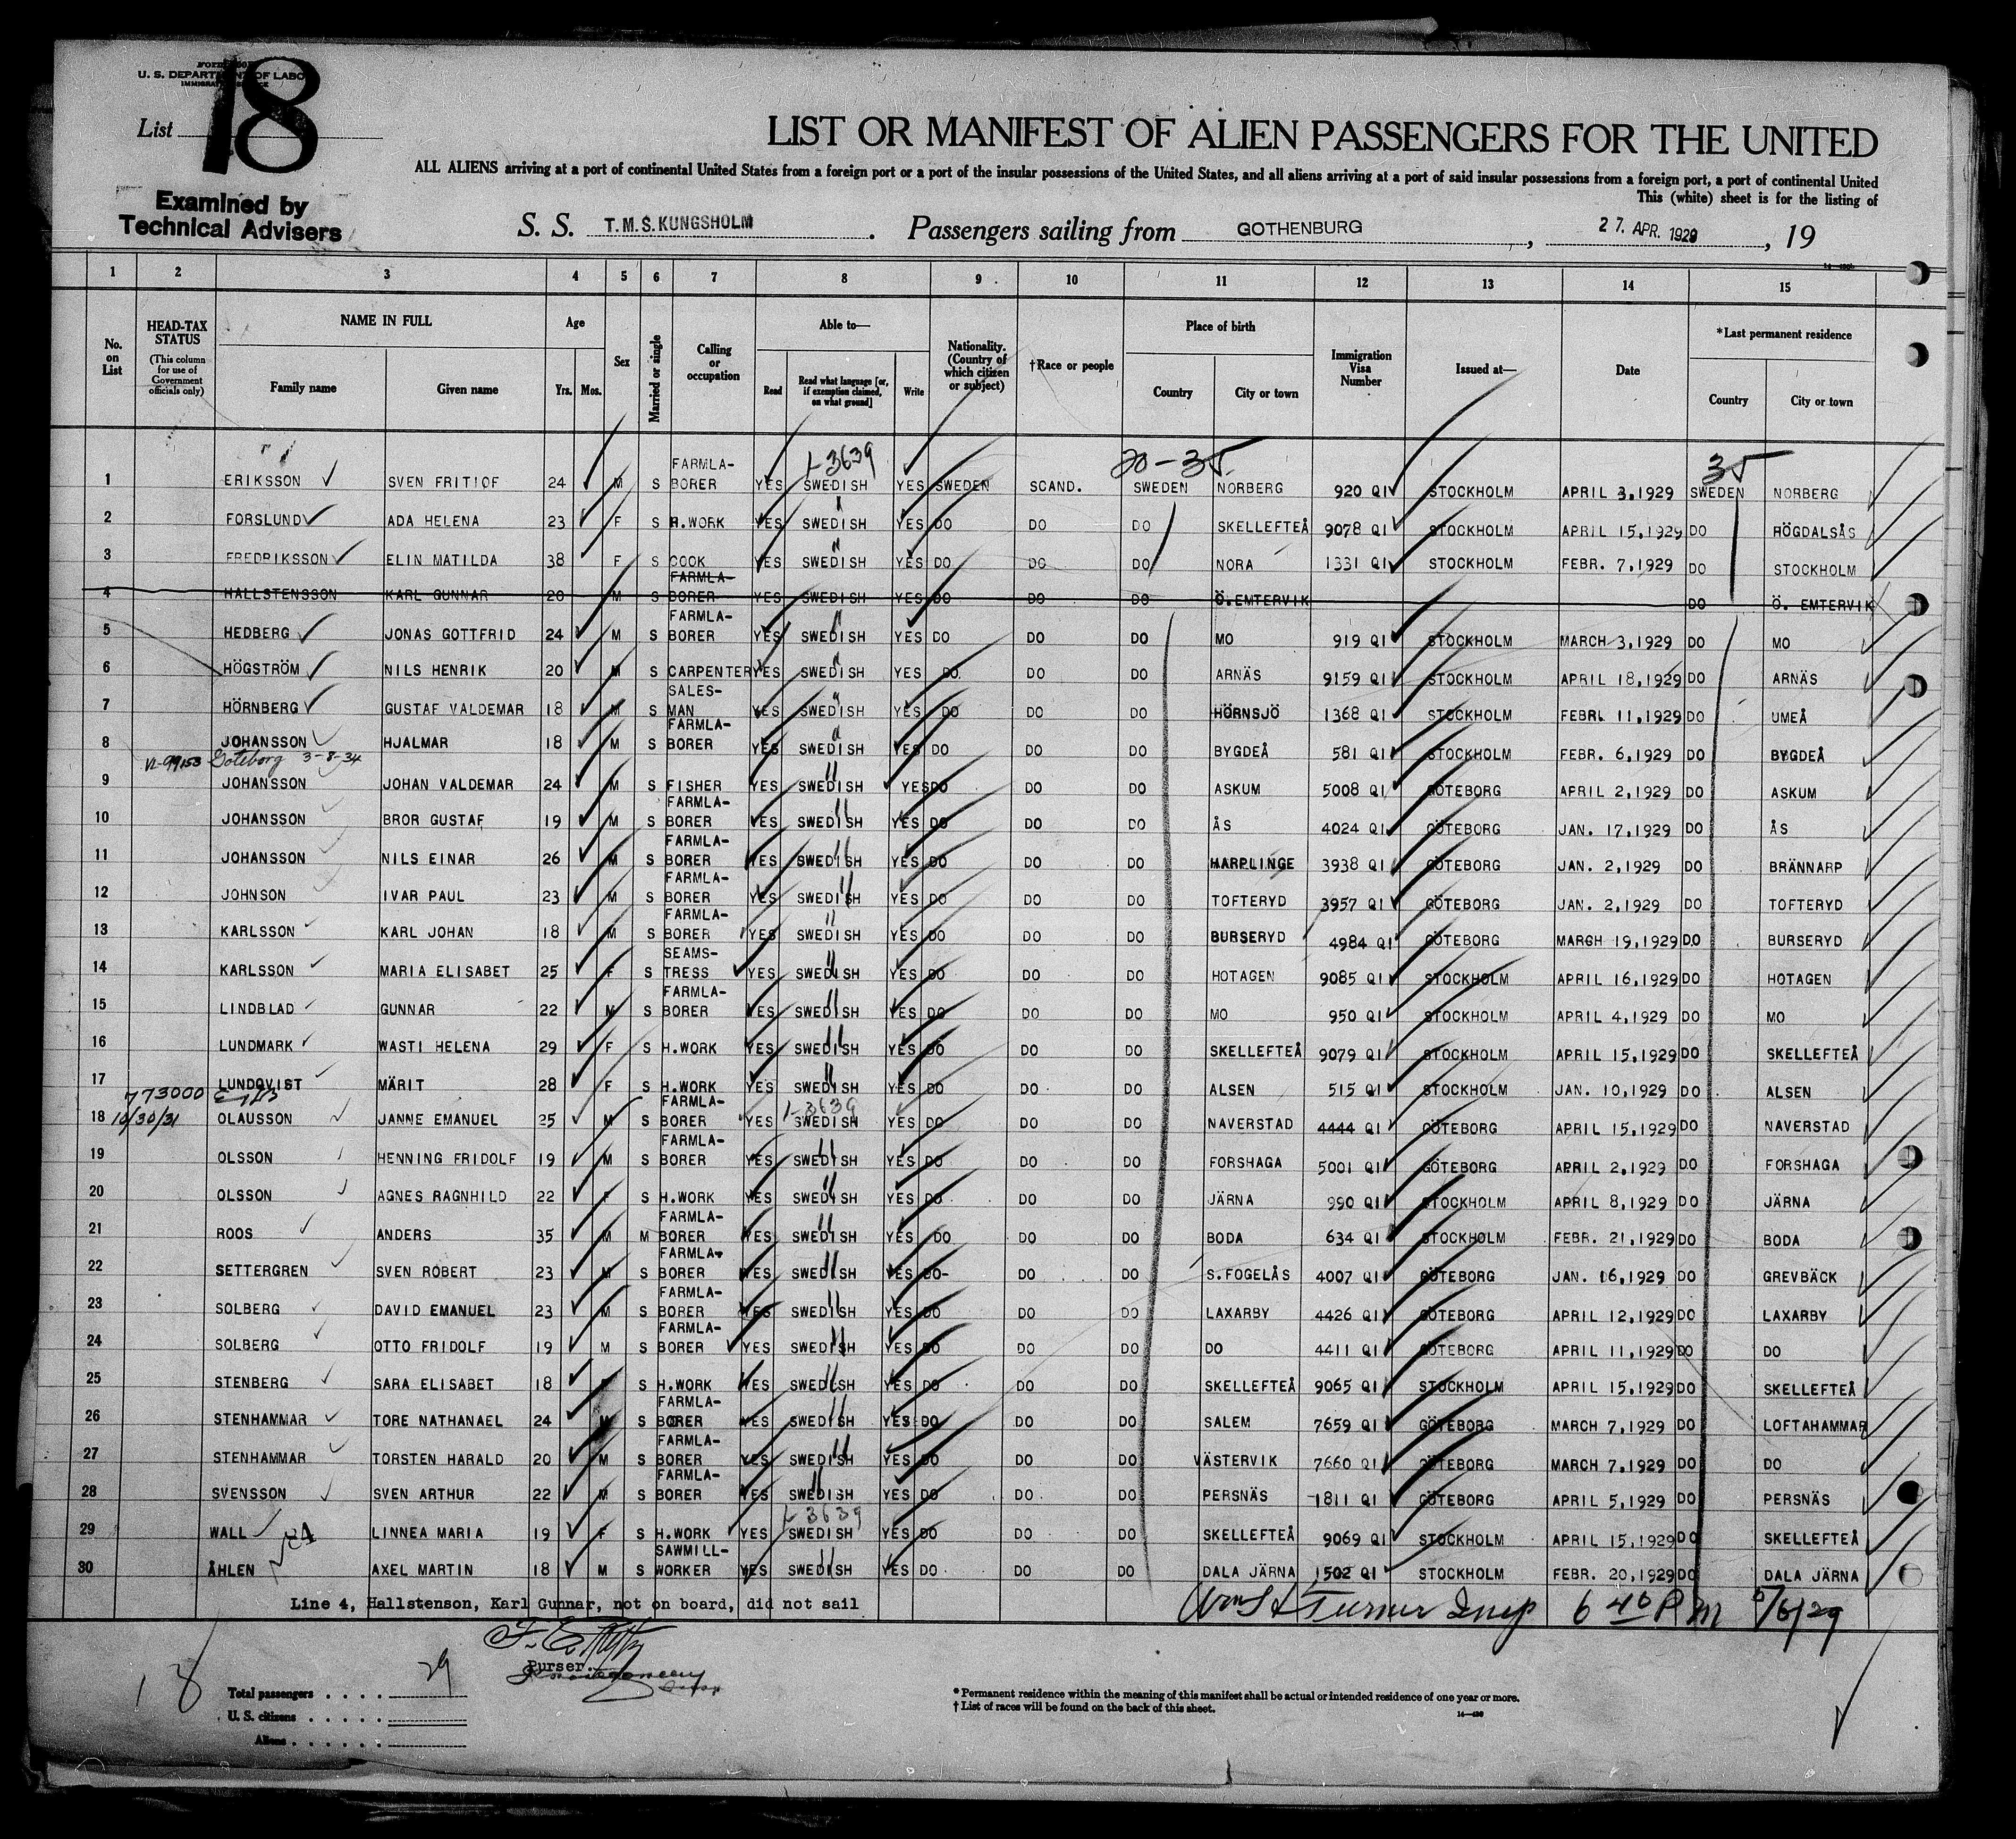 U. S. DEPARTMENT OF LABOR
List 18
Examined by
Technical Advisers
LIST OR MANIFEST OF ALIEN PASSENGERS FOR THE UNITED
ALL ALIENS arriving at a port of continental United States from a foreign port or a port of the insular possessions of the United States, and all aliens arriving at a port of said insular possessions from a foreign port, a port of continental United
This (white) sheet is for the listing of
S. S. T.M.S.KUNGSHOLM. Passengers sailing from GOTHENBURG, 27. APR. 1929, 19
1 2 3 4 5 6 7 8 9 10 11 12 13 14 15
No. on List
HEAD-TAX STATUS (This column for use of Government officials only)
NAME IN FULL Family name Given name
Age Yrs. Mos.
Sex
Married or single
Calling or occupation
Able to— Read Read what language [or, if exemption claimed, on what ground] Write
Nationality. (Country of which citizen or subject)
†Race or people
Place of birth Country City or town
Immigration Visa Number
Issued at—
Date
*Last permanent residence Country City or town
1-3639 20-35 35
1 ERIKSSON SVEN FRITIOF 24 M S FARMLA-BORER YES SWEDISH YES SWEDEN SCAND. SWEDEN NORBERG 920 QI STOCKHOLM APRIL 3,1929 SWEDEN NORBERG
2 FORSLUND ADA HELENA 23 F S H.WORK YES SWEDISH YES DO DO DO SKELLEFTEÅ 9078 QI STOCKHOLM APRIL 15,1929 DO HÖGDALSÅS
3 FREDRIKSSON ELIN MATILDA 38 F S COOK YES SWEDISH YES DO DO DO NORA 1331 QI STOCKHOLM FEBR. 7,1929 DO STOCKHOLM
4 HALLSTENSSON KARL GUNNAR 20 M S FARMLA-BORER YES SWEDISH YES DO DO DO Ö.EMTERVIK DO Ö. EMTERVIK
5 HEDBERG JONAS GOTTFRID 24 M S FARMLA-BORER YES SWEDISH YES DO DO DO MO 919 QI STOCKHOLM MARCH 3,1929 DO MO
6 HÖGSTRÖM NILS HENRIK 20 M S CARPENTER YES SWEDISH YES DO. DO DO ARNÄS 9159 QI STOCKHOLM APRIL 18,1929 DO ARNÄS
7 HÖRNBERG GUSTAF VALDEMAR 18 M S SALES-MAN YES SWEDISH YES DO DO DO HÖRNSJÖ 1368 QI STOCKHOLM FEBR. 11,1929 DO UMEÅ
8 JOHANSSON HJALMAR 18 M S FARMLA-BORER YES SWEDISH YES DO DO DO BYGDEÅ 581 QI STOCKHOLM FEBR. 6,1929 DO BYGDEÅ
VL-99153 Göteborg 3-8-34
9 JOHANSSON JOHAN VALDEMAR 24 M S FISHER YES SWEDISH YES DO DO DO ASKUM 5008 QI GÖTEBORG APRIL 2,1929 DO ASKUM
10 JOHANSSON BROR GUSTAF 19 M S FARMLA-BORER YES SWEDISH YES DO DO DO ÅS 4024 QI GÖTEBORG JAN. 17,1929 DO ÅS
11 JOHANSSON NILS EINAR 26 M S FARMLA-BORER YES SWEDISH YES DO DO DO HARPLINGE 3938 QI GÖTEBORG JAN. 2,1929 DO BRÄNNARP
12 JOHNSON IVAR PAUL 23 M S FARMLA-BORER YES SWEDISH YES DO DO DO TOFTERYD 3957 QI GÖTEBORG JAN. 2,1929 DO TOFTERYD
13 KARLSSON KARL JOHAN 18 M S FARMLA-BORER YES SWEDISH YES DO DO DO BURSERYD 4984 QI GÖTEBORG MARCH 19,1929 DO BURSERYD
14 KARLSSON MARIA ELISABET 25 F S SEAMS-TRESS YES SWEDISH YES DO DO DO HOTAGEN 9085 QI STOCKHOLM APRIL 16,1929 DO HOTAGEN
15 LINDBLAD GUNNAR 22 M S FARMLA-BORER YES SWEDISH YES DO DO DO MO 950 QI STOCKHOLM APRIL 4,1929 DO MO
16 LUNDMARK WASTI HELENA 29 F S H.WORK YES SWEDISH YES DO DO DO SKELLEFTEÅ 9079 QI STOCKHOLM APRIL 15,1929 DO SKELLEFTEÅ
17 LUNDQVIST MÄRIT 28 F S H.WORK YES SWEDISH YES DO DO DO ALSEN 515 QI STOCKHOLM JAN. 10,1929 DO ALSEN
773000 1-3639
18 10/30/31 OLAUSSON JANNE EMANUEL 25 M S FARMLA-BORER YES SWEDISH YES DO DO DO NAVERSTAD 4444 QI GÖTEBORG APRIL 15,1929 DO NAVERSTAD
19 OLSSON HENNING FRIDOLF 19 M S FARMLA-BORER YES SWEDISH YES DO DO DO FORSHAGA 5001 QI GÖTEBORG APRIL 2,1929 DO FORSHAGA
20 OLSSON AGNES RAGNHILD 22 F S H.WORK YES SWEDISH YES DO DO DO JÄRNA 990 QI STOCKHOLM APRIL 8,1929 DO JÄRNA
21 ROOS ANDERS 35 M M FARMLA-BORER YES SWEDISH YES DO DO DO BODA 634 QI STOCKHOLM FEBR. 21,1929 DO BODA
22 SETTERGREN SVEN ROBERT 23 M S FARMLA-BORER YES SWEDISH YES DO- DO DO S.FOGELÅS 4007 QI GÖTEBORG JAN. 16,1929 DO GREVBÄCK
23 SOLBERG DAVID EMANUEL 23 M S FARMLA-BORER YES SWEDISH YES DO DO DO LAXARBY 4426 QI GÖTEBORG APRIL 12,1929 DO LAXARBY
24 SOLBERG OTTO FRIDOLF 19 M S FARMLA-BORER YES SWEDISH YES DO DO DO DO 4411 QI GÖTEBORG APRIL 11,1929 DO DO
25 STENBERG SARA ELISABET 18 S H.WORK YES SWEDISH YES DO DO DO SKELLEFTEÅ 9065 QI STOCKHOLM APRIL 15,1929 DO SKELLEFTEÅ
26 STENHAMMAR TORE NATHANAEL 24 M S FARMLA-BORER YES SWEDISH YES DO DO DO SALEM 7659 QI GÖTEBORG MARCH 7,1929 DO LOFTAHAMMAR
27 STENHAMMAR TORSTEN HARALD 20 M S FARMLA-BORER YES SWEDISH YES DO DO DO VÄSTERVIK 7660 QI GÖTEBORG MARCH 7,1929 DO DO
28 SVENSSON SVEN ARTHUR 22 M S FARMLA-BORER YES SWEDISH YES DO DO DO PERSNÄS 1811 QI GÖTEBORG APRIL 5,1929 DO PERSNÄS
1-3639
29 WALL LINNEA MARIA 19 F S H.WORK YES SWEDISH YES DO DO DO SKELLEFTEÅ 9069 QI STOCKHOLM APRIL 15,1929 DO SKELLEFTEÅ
30 ÅHLEN AXEL MARTIN 18 M S SAWMILL-WORKER YES SWEDISH YES DO DO DO DALA JÄRNA 1502 QI STOCKHOLM FEBR. 20,1929 DO DALA JÄRNA
Line 4, Hallstenson, Karl Gunnar, not on board, did not sail
Turner Insp 6 40 P M 5/6/29
Purser.
18
Total passengers . . . . 29
U. S. citizens . . . . .
Aliens . . . . . .
* Permanent residence within the meaning of this manifest shall be actual or intended residence of one year or more.
† List of races will be found on the back of this sheet.